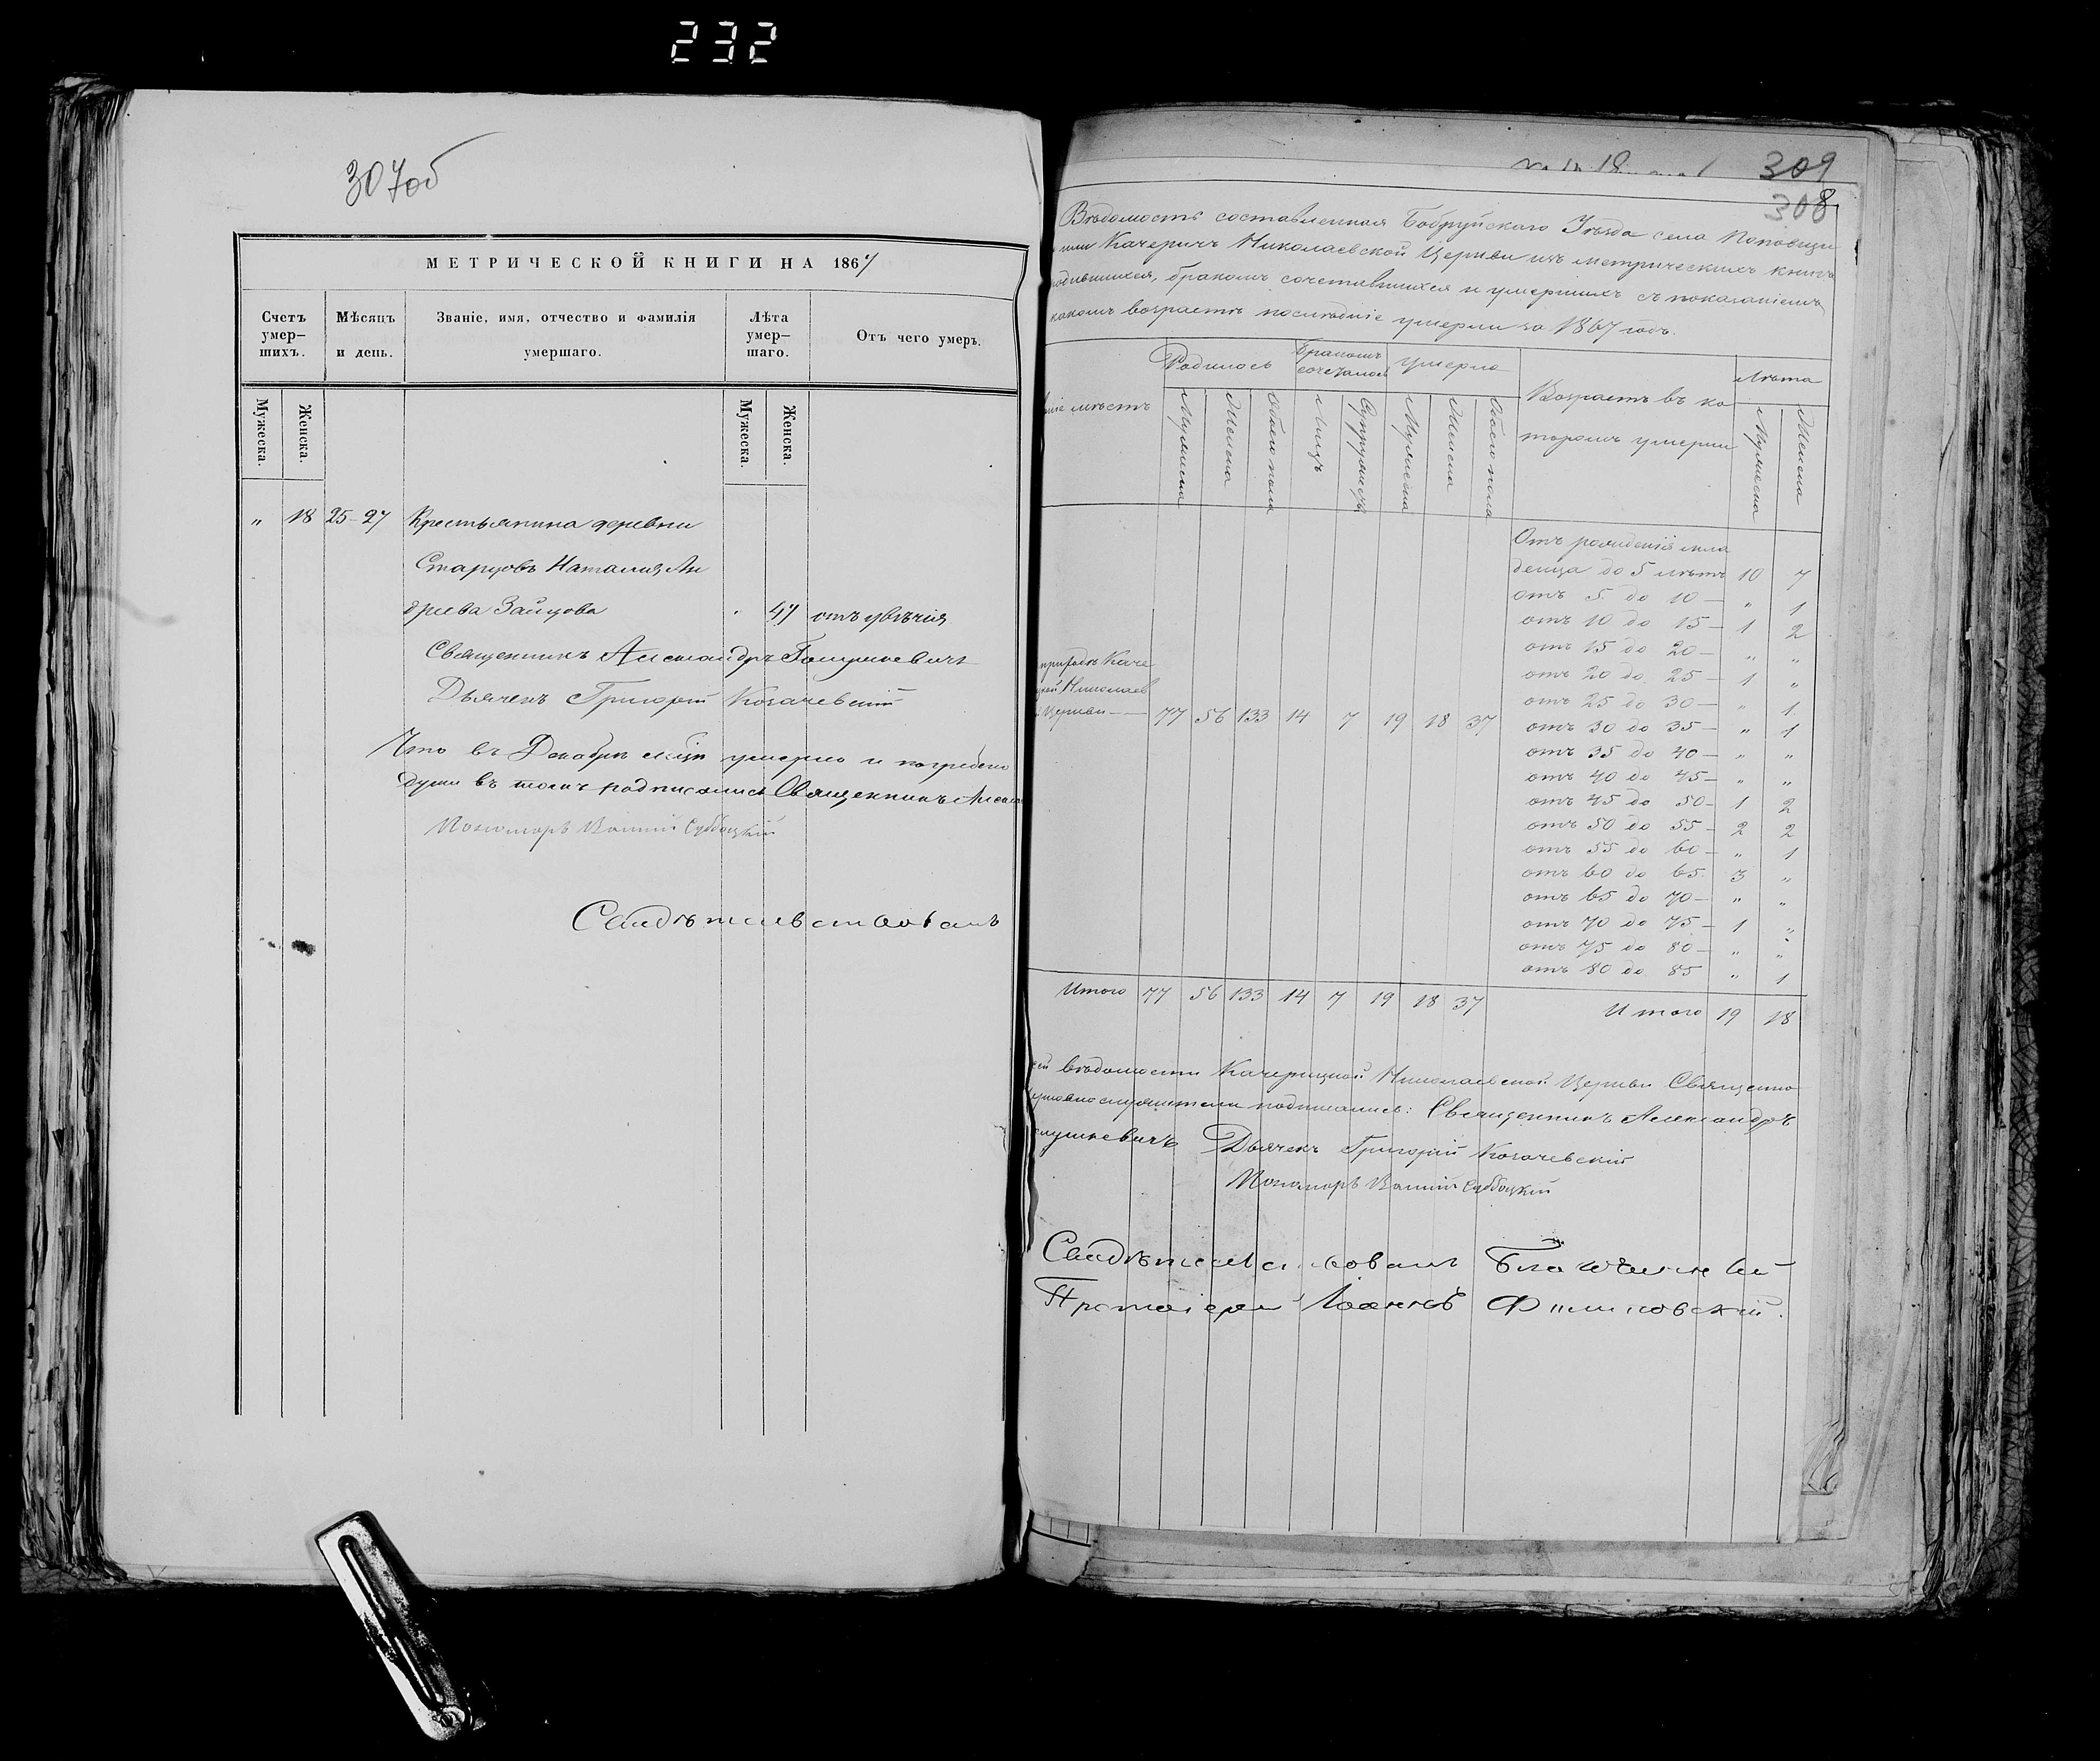 232
307об
МЕТРИЧЕСКОЙ КНИГИ НА 1867
Счетъ умер-шихъ.
Мѣсяцъ и день.
Званіе, имя, отчество и фамилія умершаго.
Лѣта умер-шаго.
Отъ чего умеръ.
Мужеска.
Женска.
Мужеска.
Женска.
„ 18 25-27 Крестьянина деревни
Старцовъ Наталия Ан
дреева Зайцова „ 47 отъ увѣчія
Священникъ Александръ
Дьячекъ Григорій Козачевскій
Что въ Декабрѣ умерло и погребено
души въ томъ подписались Священникъ
Пономарь Суббоцкій
Свидѣтельствовалъ
309
308
Вѣдомость составленная Бобруйскаго Уѣзда села Поповщи
или Качеричъ Николаевской Церкви изъ метрическихъ книгъ
родившихся, бракомъ сочетавшихся и умершихъ съ показаніемъ
какомъ возрастѣ послѣдніе умерли за 1867 годъ.
Родилось
Бракомъ сочеталось
Умерло
Возрастъ въ ко
торомъ умерли
Лѣта
мѣстъ
Мужеска
Женска
Обоего пола
Лицъ
Супружествъ
Мужеска
Женска
Обоего пола
Мужеска
Женска
Отъ рожденія мла
денца до 5 лѣтъ 10 7
отъ 5 до 10 — „ 1
отъ 10 до 15 — 1 2
отъ 15 до 20 — „ „
отъ 20 до 25 — 1 „
отъ 25 до 30 — „ 1
отъ 30 до 35 — „ 1
отъ 35 до 40 — „ „
отъ 40 до 45 — „ „
отъ 45 до 50 — 1 2
отъ 50 до 55 — 2 2
отъ 55 до 60 — „ 1
отъ 60 до 65 3 „
отъ 65 до 70 — „ „
отъ 70 до 75 — 1 „
отъ 75 до 80 — „ „
отъ 80 до 85 „ 1
приходѣ Каче
Николаев
Церкви — 77 56 133 14 7 19 18 37
Итого 77 56 133 14 7 19 18 37 Итого 19 18
вѣдомости Качерицкой Николаевской Церкви Священно
церковнослужители подписались: Священникъ Александръ
Дьячекъ Григорій Козачевскій
Пономарь Суббоцкій
Свидѣтельствовалъ Благочинный
Протоіерей Іоаннъ Филиповскій.